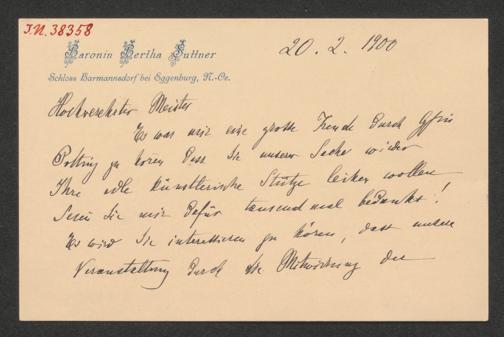 J.N. 38358
Baronin Bertha Suttner
20. 2. 1900
Schloss Harmannsdorf bei Eggenburg, N.-Oe.
Hochverehrter Meister
Es war mir eine grosse Freude durch Gfin
Pötting zu hören dass Sie unserer Sache wieder
Ihre edle künstlerische Stütze leihen wollen
Seien Sie mir dafür tausendmal bedankt!
Es wird Sie interessieren zu hören, dass unsere
Veranstaltung durch die Mitwirkung der